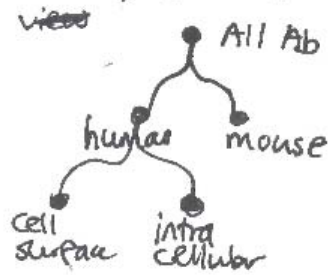 view
All Ab
human
mouse
cell
surface
intra
cellular